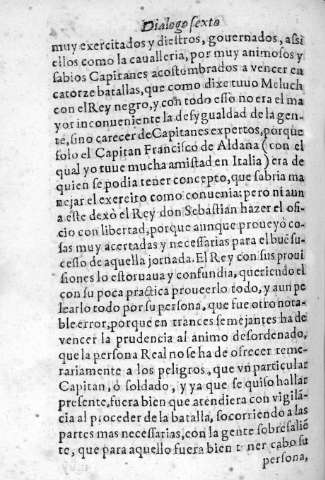 Dialogo sexto
muy exercitados y diestros, gouernados, assi
ellos como la caualleria, por muy animosos y
sabios Capitanes acostumbrados a vencer en
catorze batallas, que como dixe tuuo Meluch
con el Rey negro, y con todo esso no era el ma
yor inconueniente la desygualdad de la gen-
te, sino carecer de Capitanes expertos, porque
solo el Capitan Francisco de Aldana (con el
qual yo tuue mucha amistad en Italia) era de
quien se podia tener concepto, que sabria ma
nejar el exercito como conuenia: pero ni aun
a este dexò el Rey don Sebastian hazer el ofi-
cio con libertad, porque aunque proueyó co-
sas muy acertadas y necessarias para el bué su-
cesso de aquella jornada. El Rey con sus proui
siones lo estoruaua y confundia, queriendo el
con su poca practica proueerlo todo, y aun pe
learlo todo por su persona, que fue otro nota-
ble error, porque en trances semejantes ha de
vencer la prudencia al animo desordenado,
que la persona Real no se ha de ofrecer teme-
rariamente a los peligros, que vn particular
Capitan, ó soldado, y ya que se quiso hallar
presente, fuera bien que atendiera con vigilã
cia al proceder de la batalla, socorriendo a las
partes mas necessarias, con la gente sobresalié
te, que para aquello fuera bien tener cabo su
persona,